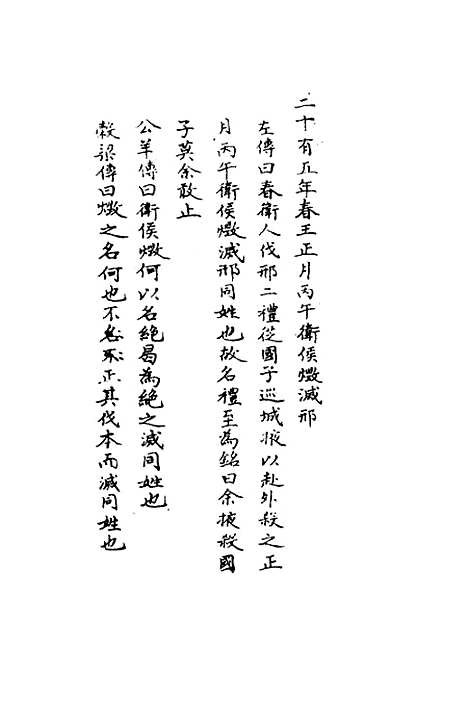 二十有五年春王正月丙午衛侯燬滅邢
左傳曰春衛人伐邢二禮從國子巡城掖以赴外殺之正
月丙午衛侯燬滅邢同姓也故名禮至為銘曰余掖殺國
子莫余敢止
公羊傳曰衛侯燬何以名絕曷為絕之滅同姓也
穀梁傳曰燬之名何也不正其伐本而滅同姓也